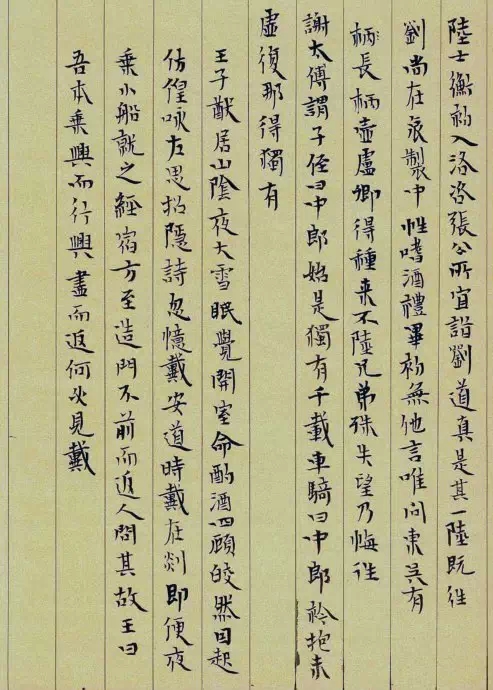 陸士衡初入洛咨張公所宜詣劉道真是其一陸既往
劉尚在哀製中性嗜酒禮畢初無他言唯問東吳有
柄長柄壺盧卿得種来不陸兄弟殊失望乃悔往
謝太傅謂子侄曰中郎始是獨有千載車騎曰中郎衿抱未
虛復那得獨有
王子猷居山陰夜大雪眠覺開室命酌酒四顧皎然因起
仿偟咏左思招隱詩忽憶戴安道時戴在剡即便夜
乘小船就之經宿方至造門不前而返人問其故王曰
吾本乘興而行興盡而返何必見戴